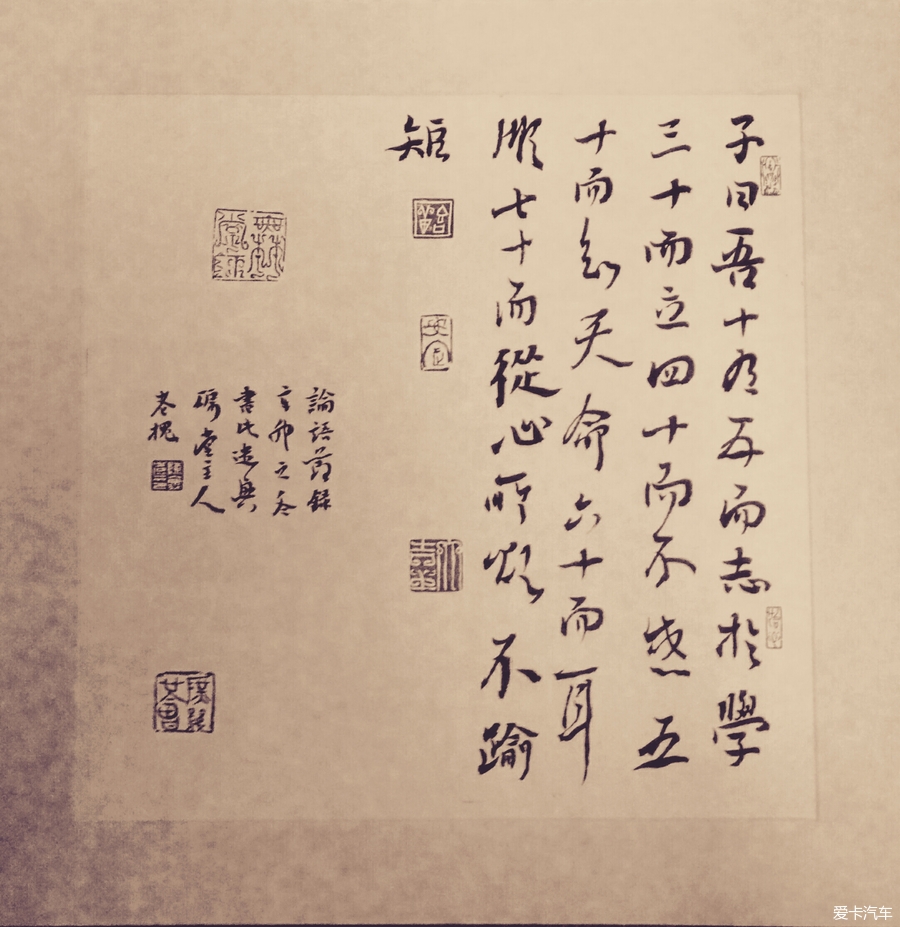 子曰吾十有五而志於學
三十而立四十而不惑五
十而知天命六十而耳
順七十而從心所欲不踰
矩
論語節錄
辛卯之冬
書此遣興
堂主人
老槐
爱卡汽车